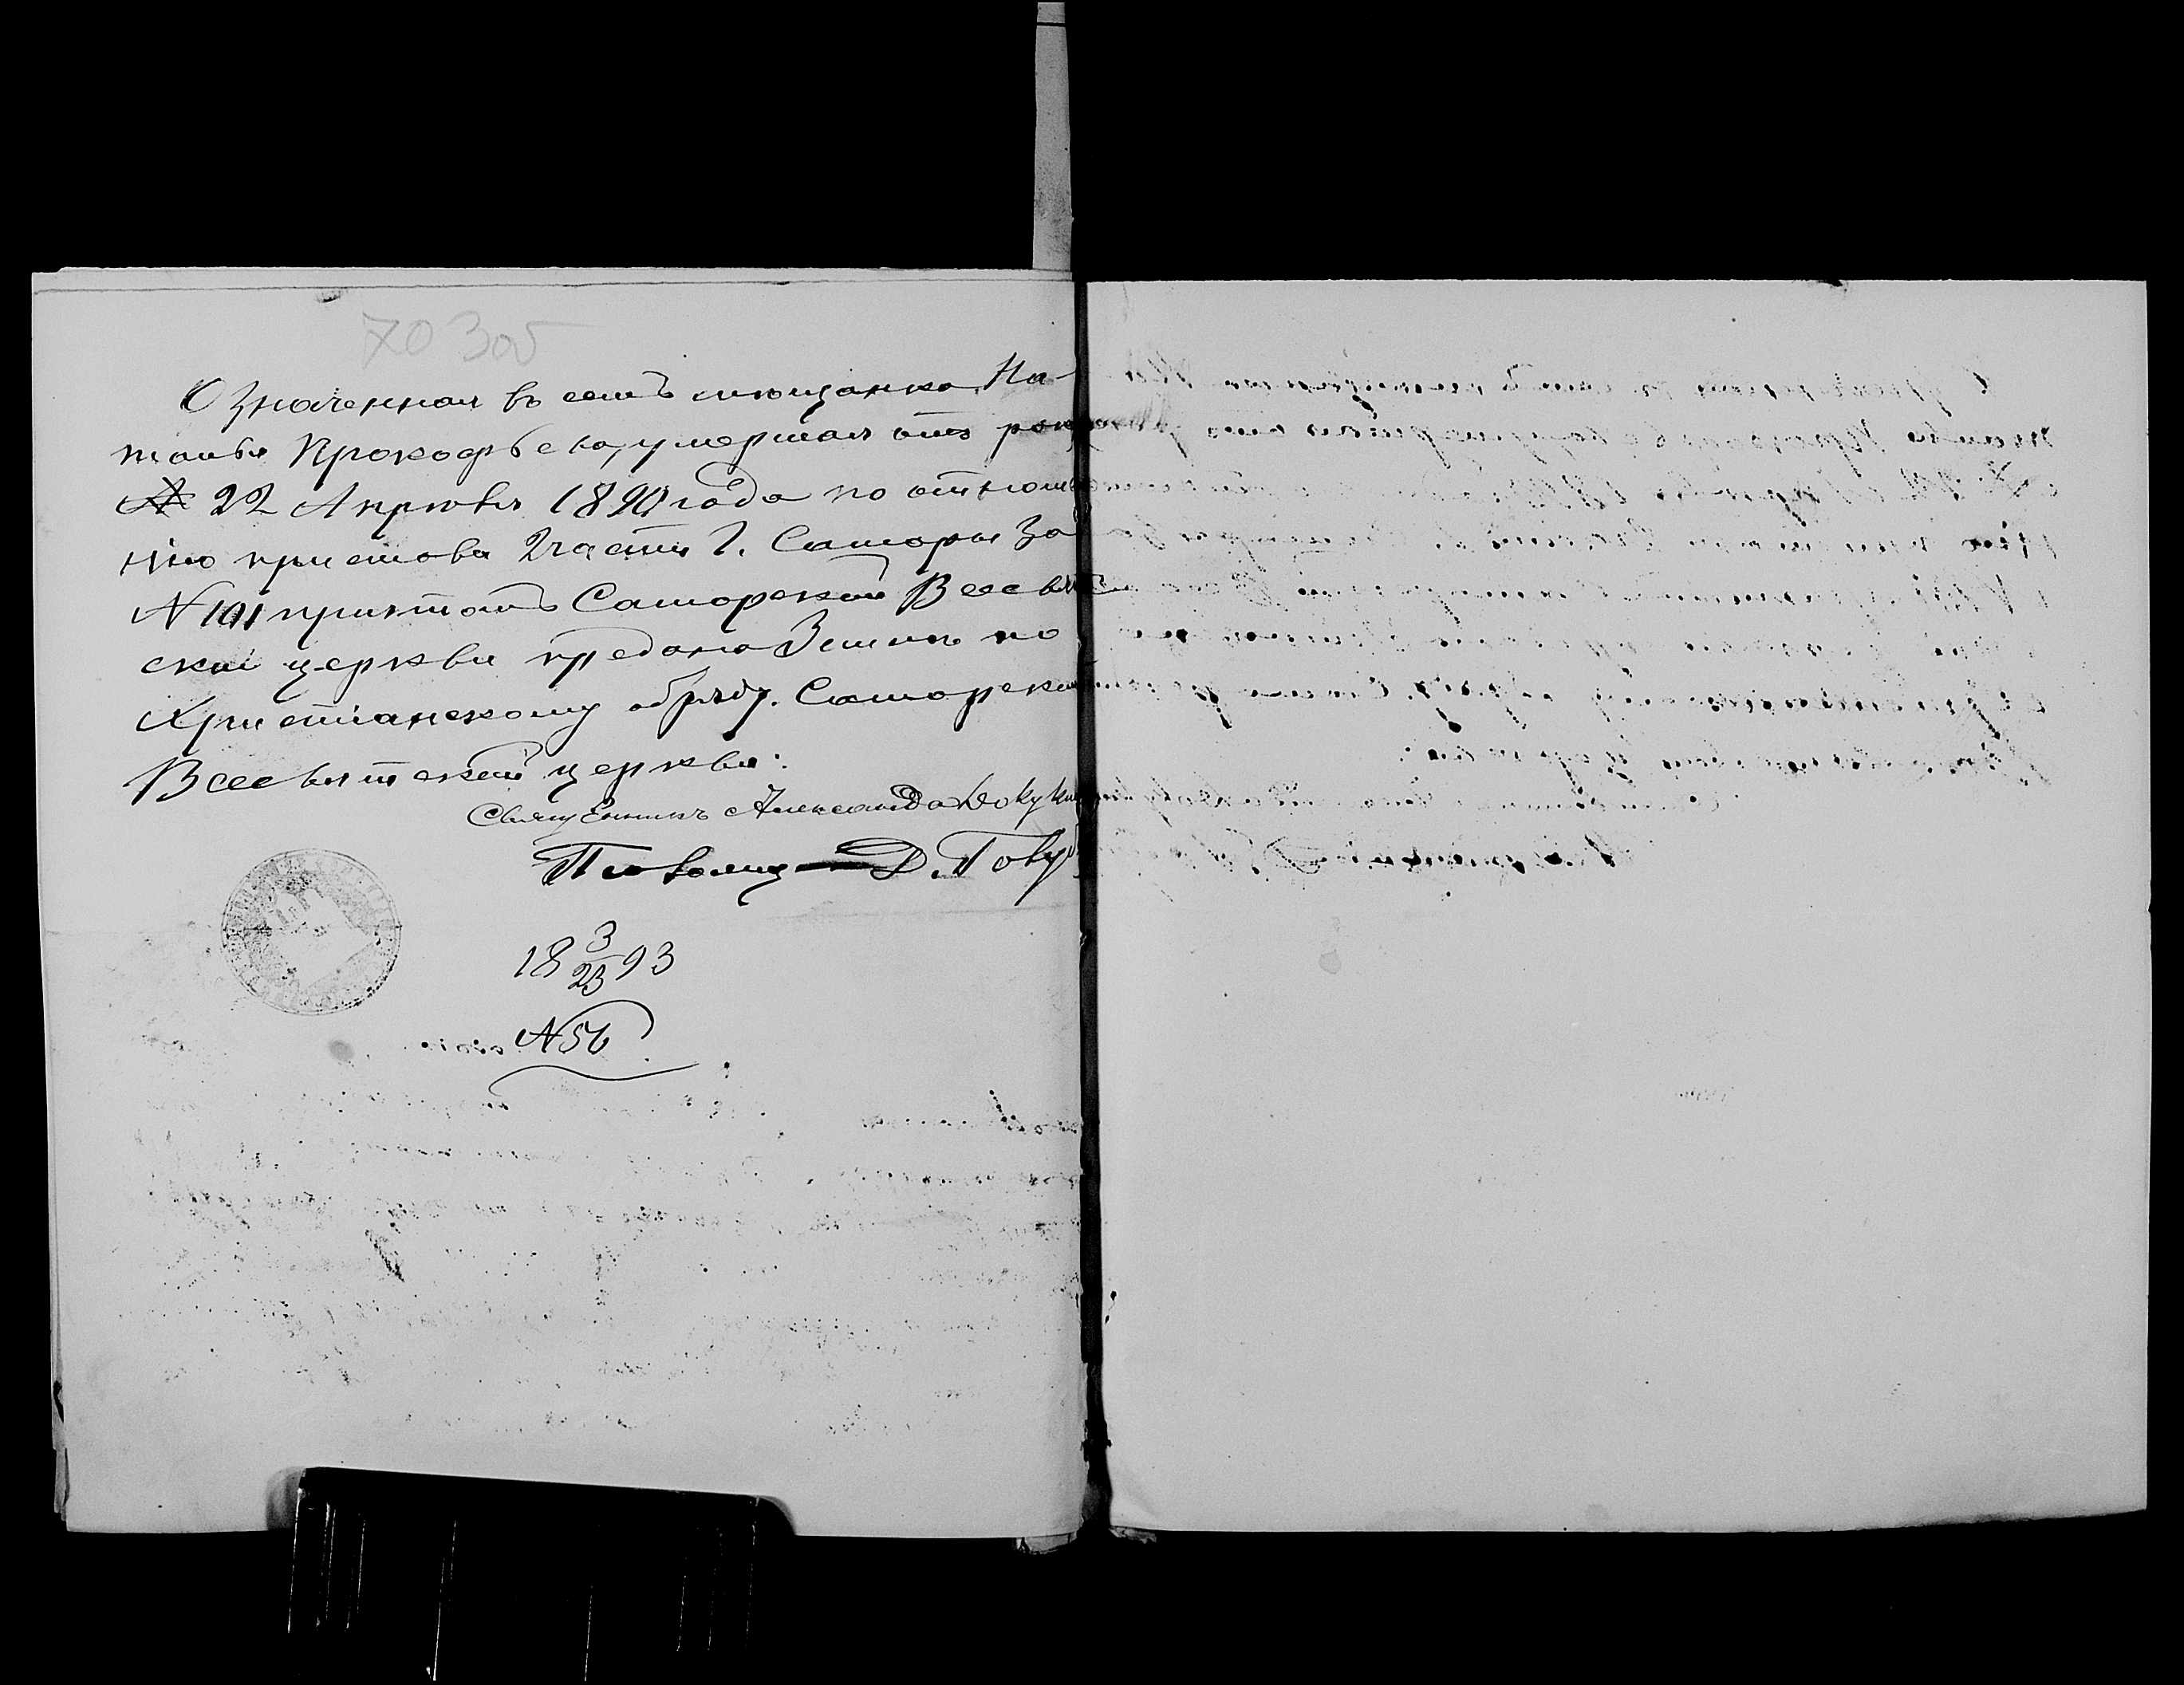 70 305
Означенная въ семъ мѣщанка На-
талья Прокофьева, умершая отъ
22 Апрѣля 1890 года по отноше
нію пристава 2 части г. Самары за
N 101 причтомъ Самарской Всесвят
ской церкви предана Землѣ по
Христіанскому обряду. Самарской
Всесвятской церкви:
Священникъ Александръ Докукин
Псаломщ Д.
18 3/23 93
N 56